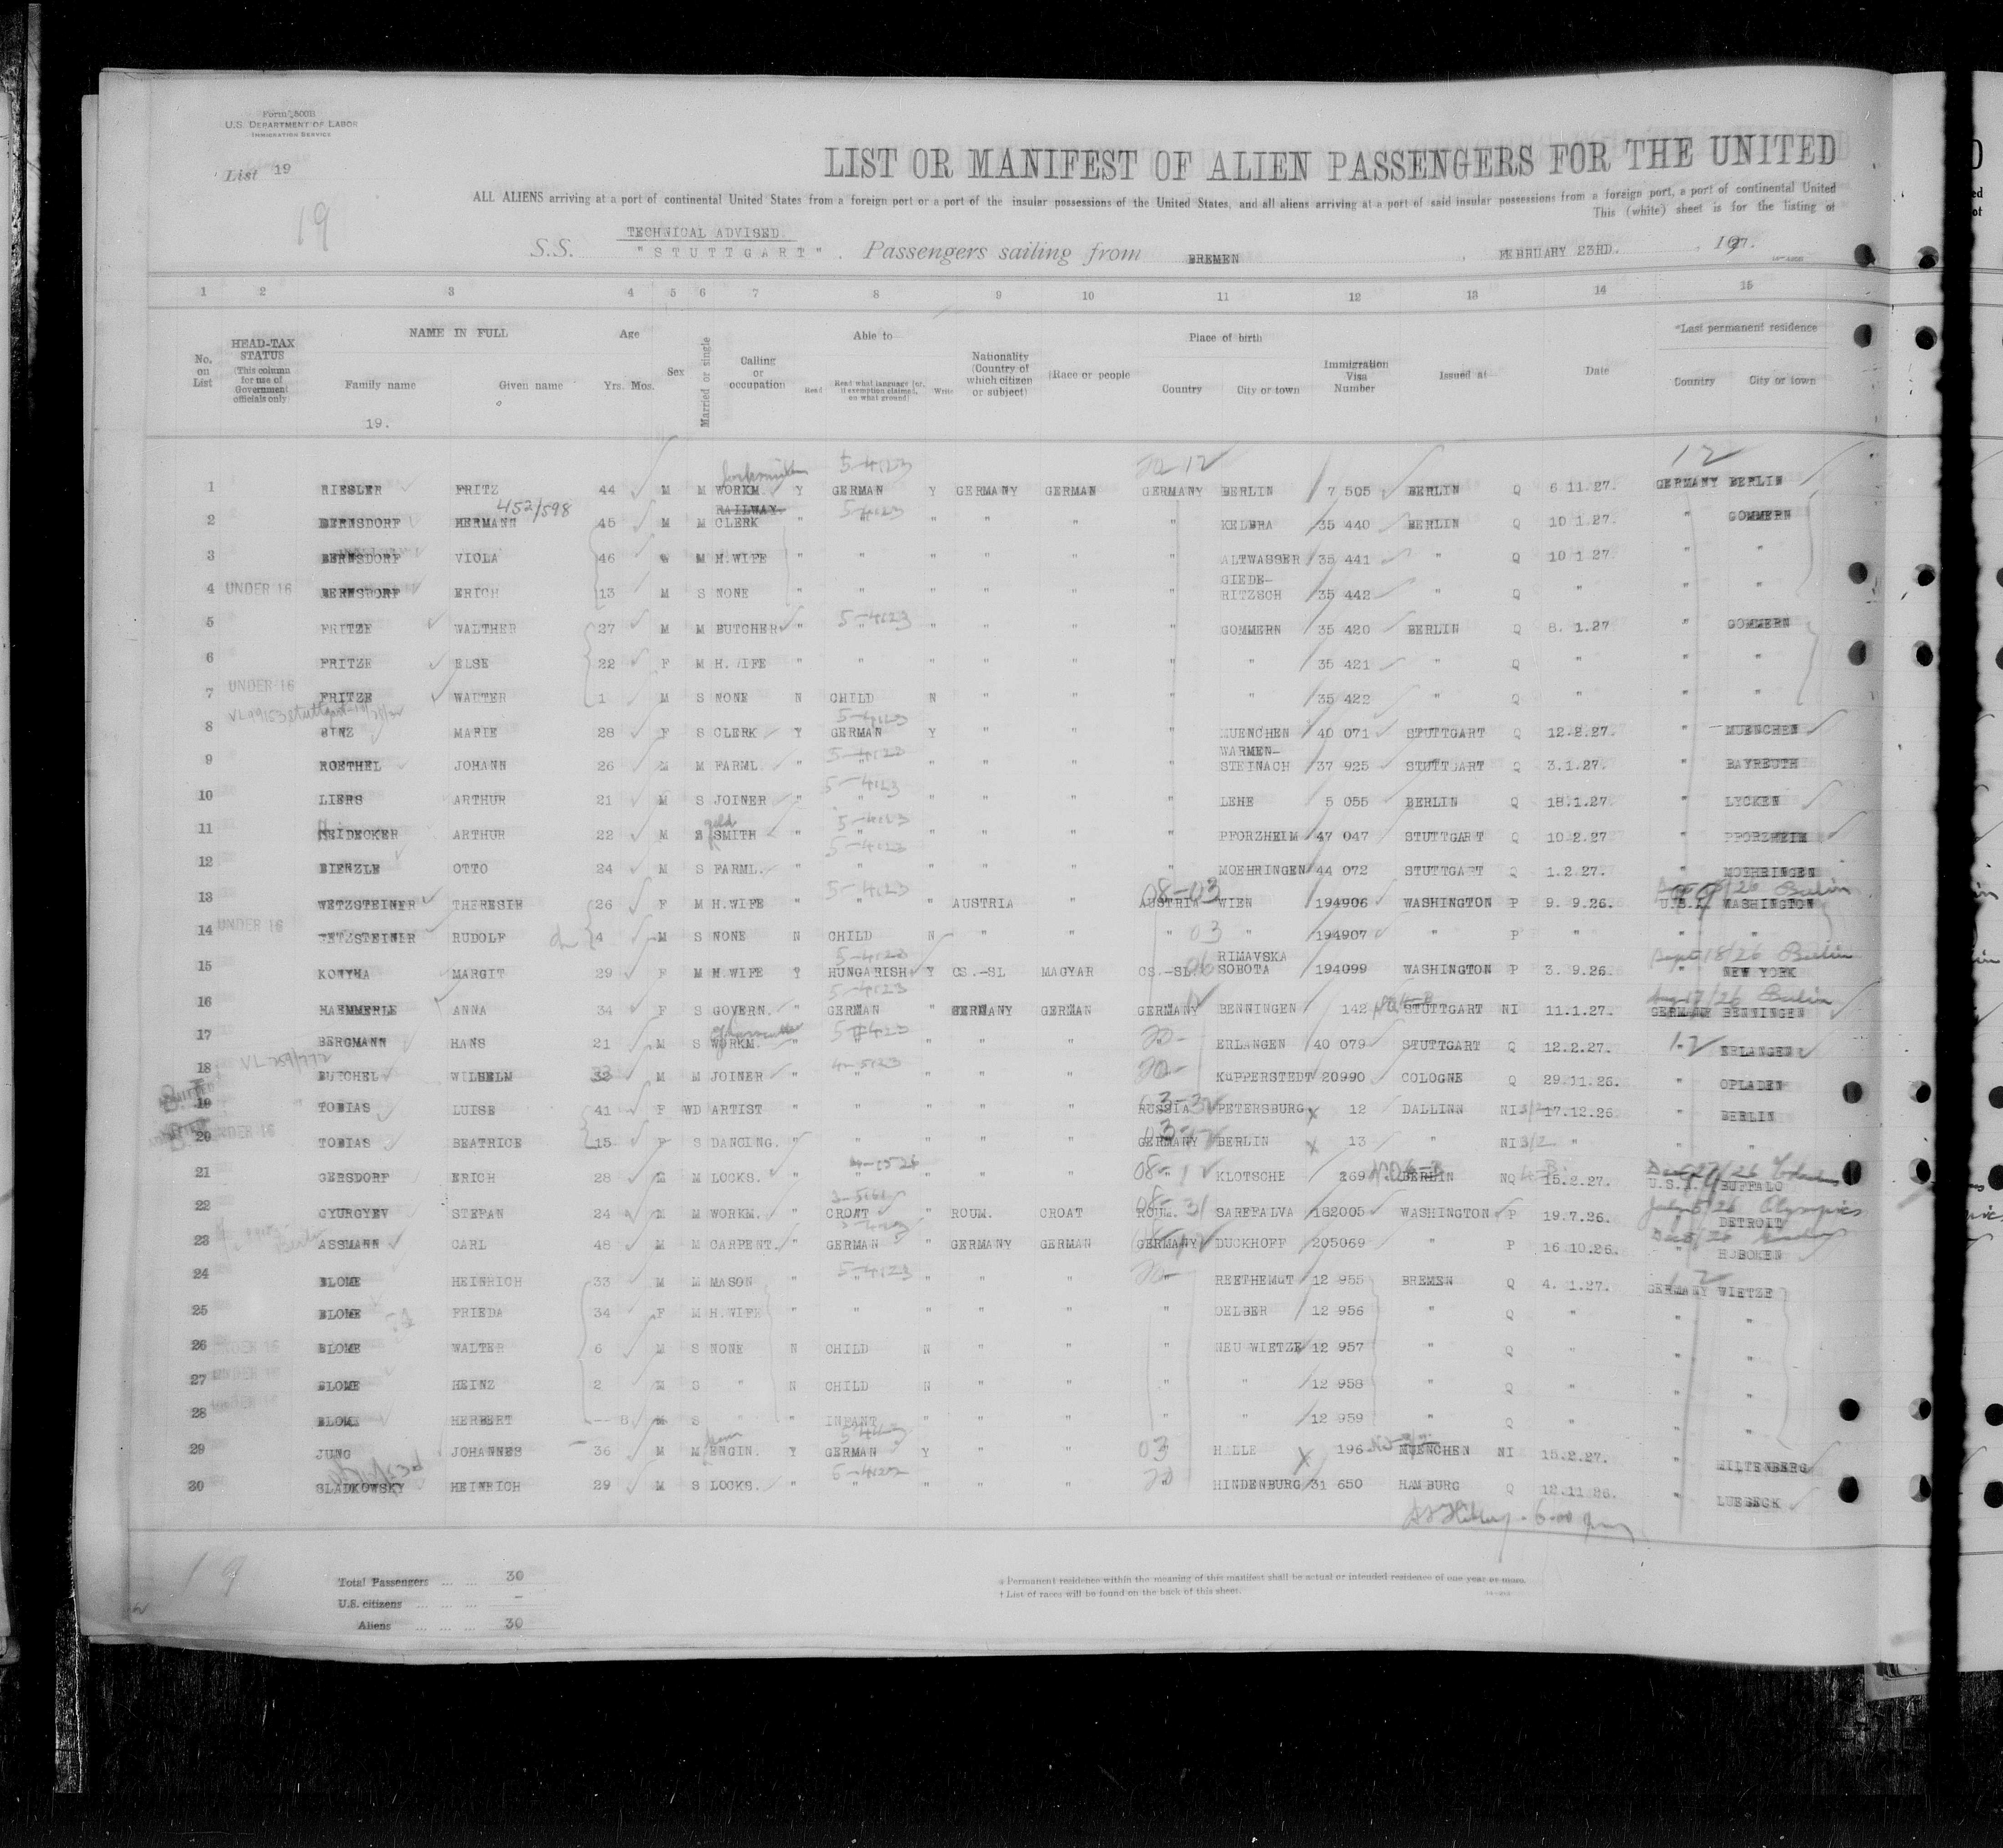 Form 500B
U.S. DEPARTMENT OF LABOR
IMMIGRATION SERVICE
List 19
19
LIST OR MANIFEST OF ALIEN PASSENGERS FOR THE UNITED
ALL ALIENS arriving at a port of continental United States from a foreign port or a port of the insular possessions of the United States, and all aliens arriving at a port of said insular possessions from a foreign port, a port of continental United
This (white) sheet is for the listing of
TECHNICAL ADVISED
S.S. "STUTTGART". Passengers sailing from BREMEN, FEBRUARY 23RD. , 1927.
1 2 3 4 5 6 7 8 9 10 11 12 13 14 15
No. on List
HEAD-TAX STATUS (This column for use of Government officials only)
NAME IN FULL
Family name Given name
19.
Age
Yrs. Mos.
Sex
Married or single
Calling or occupation
Able to
Read Read what language (or, if exemption claimed, on what ground) Write
Nationality (Country of which citizen or subject)
Race or people
Place of birth
Country City or town
Immigration Visa Number
Issued at
Date
*Last permanent residence
Country City or town
5-4123 20 12 12
1 RIESLER FRITZ 44 M M WORKM. Y GERMAN Y GERMANY GERMAN GERMANY BERLIN 7 505 BERLIN Q 6 11.27. GERMANY BERLIN
452/598 RAILWAY
2 BERNSDORF HERMANN 45 M M CLERK " " " " " " KELBRA 35 440 BERLIN Q 10 1.27. " GOMMERN
3 BERNSDORF VIOLA 46 M H.WIFE " " " " " " ALTWASSER 35 441 " Q 10 1.27. " "
GIEDE-
4 UNDER 16 BERNSDORF ERICH 13 M S NONE " " " " " " RITZSCH 35 442 " Q " " "
5 FRITZE WALTHER 27 M M BUTCHER " " " " " " GOMMERN 35 420 BERLIN Q 8. 1.27 " GOMMERN
6 FRITZE ELSE 22 F M H.WIFE " " " " " " " 35 421 " Q " " "
7 UNDER 16 FRITZE WALTER 1 M S NONE N CHILD N " " " " 35 422 " Q " " "
8 BINZ MARIE 28 F S CLERK Y GERMAN Y " " " MUENCHEN 40 071 STUTTGART Q 12.2.27. " MUENCHEN
WARMEN-
9 ROETHEL JOHANN 26 M M FARML. " " " " " " STEINACH 37 925 STUTTGART Q 3.1.27. " BAYREUTH
10 LIERS ARTHUR 21 M S JOINER " " " " " " LEHE 5 055 BERLIN Q 18.1.27 " LYCKEN
gold
11 HEIDECKER ARTHUR 22 M S SMITH " " " " " " PFORZHEIM 47 047 STUTTGART Q 10.2.27 " PFORZHEIM
12 BIENZLE OTTO 24 M S FARML. " " " " " " MOEHRINGEN 44 072 STUTTGART Q 1.2.27. " MOEHRINGEN
08-03
13 WETZSTEINER THERESIE 26 F M H.WIFE " " " AUSTRIA " AUSTRIA WIEN 194906 WASHINGTON P 9. 9.26. U.S.A. WASHINGTON
14 UNDER 16 WETZSTEINER RUDOLF 4 M S NONE N CHILD N " " " 03 " 194907 " P " " "
RIMAVSKA Sept 18/26 Berlin
15 KONYHA MARGIT 29 F M H.WIFE Y HUNGARISH Y CS.-SL MAGYAR CS.-SL. SOBOTA 194099 WASHINGTON P 3. 9.26. " NEW YORK
Aug 17/26 Berlin
16 HAEMMERLE ANNA 34 F S GOVERN. " GERMAN " GERMANY GERMAN GERMANY BENNINGEN 142 STUTTGART NI 11.1.27. GERMANY BENNINGEN
17 BERGMANN HANS 21 M S WORKM. " " " " " 20- ERLANGEN 40 079 STUTTGART Q 12.2.27. 12 ERLANGEN
18 VL 759/772 BUTCHEL WILHELM 32 M M JOINER " " " " " 20- KUPPERSTEDT 20990 COLOGNE Q 29.11.26. " OPLADEN
19 TOBIAS LUISE 41 F WD ARTIST " " " " " RUSSIA PETERSBURG X 12 DALLINN NI 3/2 17.12.26 " BERLIN
20 UNDER 16 TOBIAS BEATRICE 15 F S DANCING. " " " " " GERMANY BERLIN X 13 " NI 3/2 " " "
21 GERSDORF ERICH 28 M M LOCKS. " " " " " 08- KLOTSCHE 269 BERLIN NQ 15.2.27. U.S.A. BUFFALO
July 5/26 Olympic
22 GYURGYEV STEFAN 24 M M WORKM. " CROAT " ROUM. CROAT ROUM. SAREFALVA 182005 WASHINGTON P 19.7.26. " DETROIT
23 ASSMANN CARL 48 M M CARPENT. " GERMAN " GERMANY GERMAN GERMANY DUCKHOFF 205069 " P 16.10.26. " HOBOKEN
24 BLOME HEINRICH 33 M M MASON " " " " " 20- REETHEMGT 12 955 BREMEN Q 4. 1.27. GERMANY WIETZE
25 BLOME FRIEDA 34 F M H.WIFE " " " " " " OELBER 12 956 " Q " " "
26 UNDER 16 BLOME WALTER 6 M S NONE N CHILD N " " " NEU WIETZE 12 957 " Q " " "
27 UNDER 16 BLOME HEINZ 2 M S " N CHILD N " " " " 12 958 " Q " " "
28 UNDER 16 BLOME HERBERT -- 8 M S " " INFANT " " " " " 12 959 " Q " " "
29 JUNG JOHANNES 36 M M ENGIN. Y GERMAN Y " " 03 HALLE X 196 MUENCHEN NI 15.2.27. " MILTENBERG
30 SLADKOWSKY HEINRICH 29 M S LOCKS. " " " " " 20 HINDENBURG 31 650 HAMBURG Q 12.11.26. " LUEBECK
19
Total Passengers ... ... 30
U.S. citizens ... ... ... -
Aliens ... ... ... 30
* Permanent residence within the meaning of this manifest shall be actual or intended residence of one year or more.
† List of races will be found on the back of this sheet.